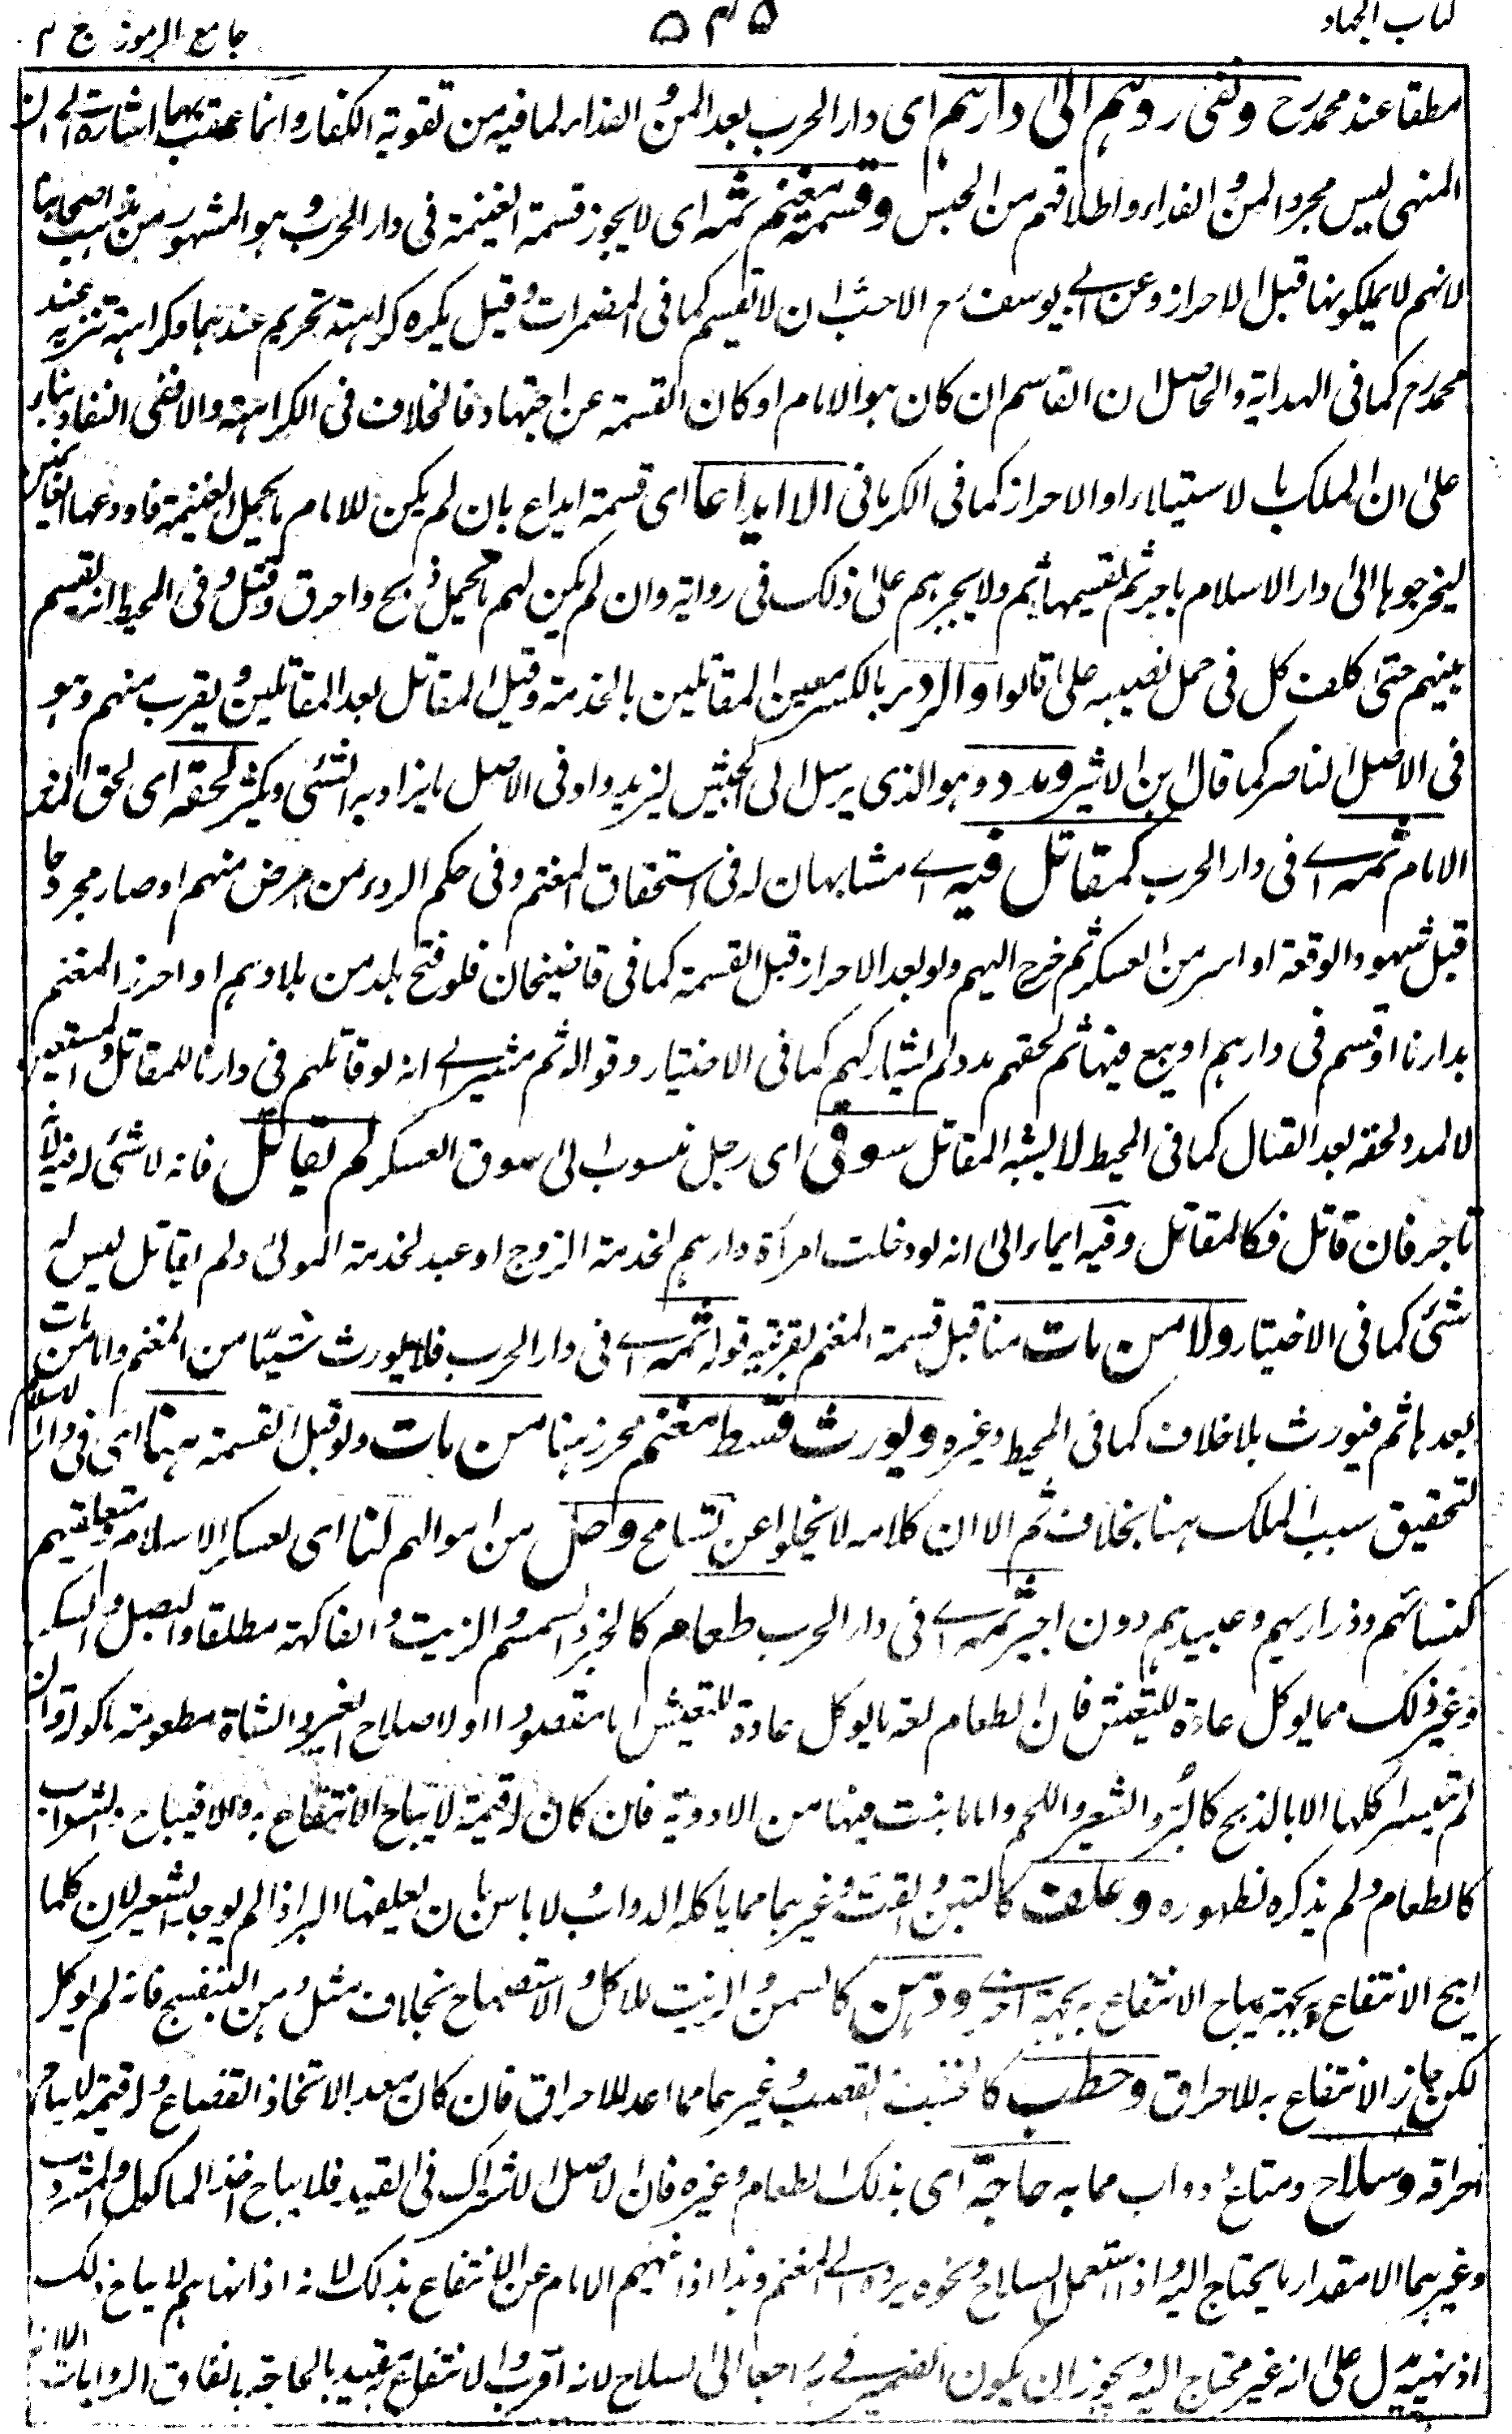 كتاب الجهاد
٥٤٥
جامع الرموز ج ٢
مطقا عند محمد رح ونفى ردهم الى دارهم اى دار الحرب بعد المن والفداء لما فيه من تقوية الكفار وانما عقب بهما اشارة الى ان
المنهى ليس مجرد المن والفداء واطلاقهم من الحبس وقسمة مغنم ثمه اى لا يجوز قسمة الغنيمة فى دار الحرب وهو المشهور من مذهب اصحابنا
لانهم لا يملكونها قبل الاحراز وعن ابى يوسف رح الاحب ان لا تقسم كما فى المضمرات وقيل يكره كراهة تحريم عندهما وكراهة تنزيه عند
محمد رح كما فى الهداية والحاصل ان القاسم ان كان هو الامام او كان القسمة عن اجتهاد فالخلاف فى الكراهة والا ففى النفاد بناء
على ان الملك بالاستيلاء او الاحراز كما فى الكرمانى الا ايداعا اى قسمة ايداع بان لم يكن للامام ما يحمل الغنيمة فاودعها الغانمين
ليخرجوها الى دار الاسلام باجر ثم تقسيمها ثم ولا يجبرهم على ذلك فى رواية وان لم يكن لهم ما يحمل ذبح واحرق وقتل وفى المحيط انه تقسيم
بينهم حتى كلف كل فى حمل نصيبه على ما قالوا والردء بالكسر معين المقاتلين بالخدمة وقيل المقاتل بعد المقاتلين ويقرب منهم وهو
فى الاصل الناصر كما قال ابن الاثير ومدد وهو الذى يرسل الى الجيش ليزيدوا وفى الاصل ما يزاد به الشئى ويكثر لحقه اى لحق المدد
الامام ثمه اى فى دار الحرب كمقاتل فيه اى مشابهان له فى استحقاق المغنم وفى حكم الردء من مرض منهم او صار مجروحا
قبل شهود الوقعة او اسر من العسكر ثم خرج اليهم ولو بعد الاحراز قبل القسمة كما فى قاضيخان فلو فتح بلد من بلادهم او احرز المغنم
بدارنا او قسم فى دارهم او بيع فيها ثم لحقهم مدد لم يشاركهم كما فى الاختيار وقوله ثم مشير الى انه لو قاتلهم فى دارنا للمقاتل والمستعين
لا لمدد لحقه بعد القتال كما فى المحيط لا يشبه المقاتل سوقى اى رجل منسوب الى سوق العسكر لم يقاتل فانه لا شئى له فيه لانه
تاجر فان قاتل فكالمقاتل وفيه ايماء الى انه لو دخلت امرأة دارهم لخدمة الزوج او عبد لخدمة المولى ولم يقاتل ليس له
شئى كما فى الاختيار ولا من مات منا قبل قسمة المغنم بقرينة قوله ثمه اى فى دار الحرب فلا يورث شيئا من المغنم واما من مات
بعدها ثم فيورث بلا خلاف كما فى المحيط وغيره ويورث قسط مغنم محرز هنا من مات ولو قبل القسمة ههنا اى فى دار الاسلام
لتحقيق سبب الملك هنا بخلاف ثم الا ان كلامه لا يخلوا عن تسامح وحل من اموالهم لنا اى لعسكر الاسلام ومتعلقيهم
كنسائهم وذراريهم وعبيدهم دون اجير ثمه اى فى دار الحرب طعام كالخبز والسمسم والزيت والفاكهة مطلقا والبصل والسكر
وغير ذلك مما يوكل عادة للتعيش فان الطعام لغة ما يوكل عادة للتعيش اما مقصودا او لاصلاح الغير والشاة مطعومة ماكولة وان
لم تتيسر اكلها الا بالذبح كالبُر والشعير واللحم واما ما ينبت فيها من الادوية فان كان له قيمة لا يباح الانتفاع به والا فيباح والشراب
كالطعام ولم يذكره لظهوره وعلف كالتبن والقت وغيرهما مما ياكله الدواب لا باس بان يعلفها البر اذا لم يوجد الشعير لان كلما
ابيح الانتفاع به بجهة يباح الانتفاع به بجهة اخرى ودهن كالسمن والزيت للاكل والاستصباح بخلاف مثل دهن البنفسج فانه لم يوكل
لكن جاز الانتفاع به للاحراق وحطب كالخشب والقصب وغيرهما مما اعد للاحراق فان كان معدا لاتخاذ القصاع وله قيمة لا يباح
احراقه وسلاح ومتاع ودواب مما به حاجة اى بذلك الطعام وغيره فان الاصل الاشتراك فى القيد فلا يباح اخذ الماكول والمشروب
وغيرهما الا مقدار ما يحتاج اليه واذا استعمل السلاح ونحوه يرده الى المغنم وهذا اذا لم ينههم الامام عن الانتفاع بذلك لانه اذا نهاهم لا يباح ذلك
اذ نهيه يدل على انه غير محتاج اليه ويجوز ان يكون الضمير فى به راجعا الى سلاح لانه اقرب والانتفاع به يقيد بالحاجة باتفاق الروايات